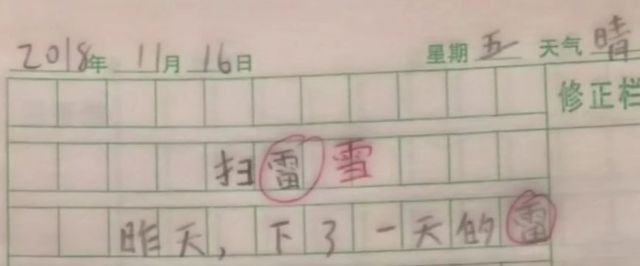 2018年 11月 16日 星期 五 天气 晴
修正栏
扫雷 雪
昨天，下了一天的雷